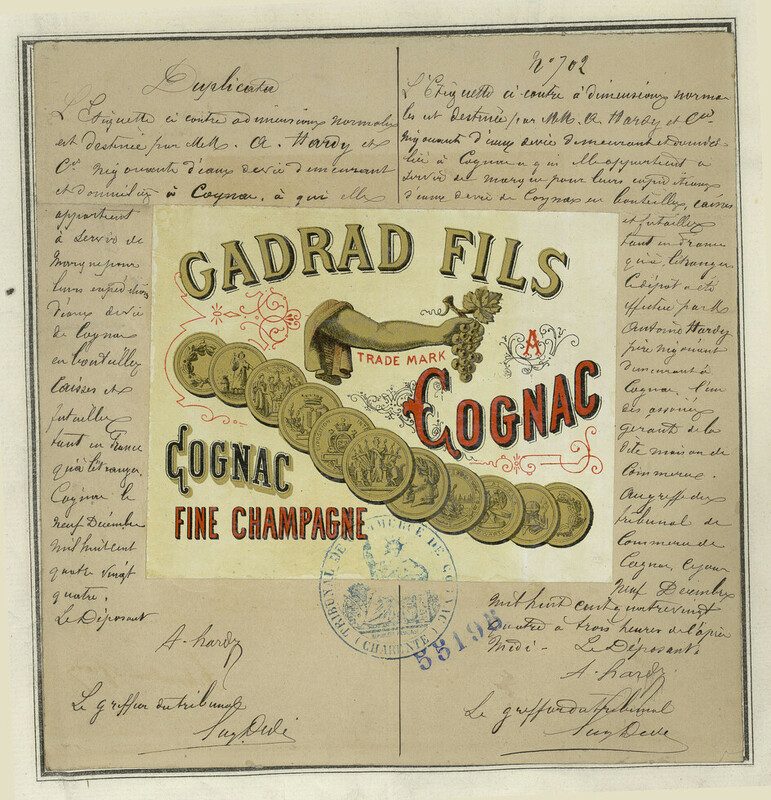 Duplicata
L'Etiquette ci contre à dimensions normales
est destinée par MM. A. Hardy et
Cie négociants d'eaux de vie demeurant
et domiciliés à Cognac, à qui elle
appartient
à servir de
marque pour
leurs expéditions
d'eaux de vie
de Cognac
en bouteilles
caisses et
futailles
tant en France
qu'à l'étranger.
Cognac le
neuf Décembre
mil huit cent
quatre vingt
quatre.
Le Déposant
A. Hardy
Le greffier du tribunal
No 702
L'Etiquette ci-contre à dimensions norma-
les est destinée par MM. A. Hardy et Cie
négociants d'eaux de vie demeurant et domici-
liés à Cognac à qui elle appartient à
servir de marque pour leurs expéditions
d'eaux de vie de Cognac en bouteilles, caisses
et futailles
tant en France
qu'à l'étranger.
Ce dépôt a été
effectué par M.
Antoine Hardy
père négociant
demeurant à
Cognac, l'un
des associés
gérant de la
dite maison de
Commerce.
Au greffe du
tribunal de
Commerce de
Cognac, ce jour
neuf Décembre
mil huit cent quatre vingt
quatre à trois heures de l'après
midi - Le Déposant
A. Hardy
Le greffier du tribunal
GADRAD FILS
TRADE MARK
A
COGNAC
COGNAC
FINE CHAMPAGNE
TRIBUNAL DE COMMERCE DE COGNAC
(CHARENTE)
55195